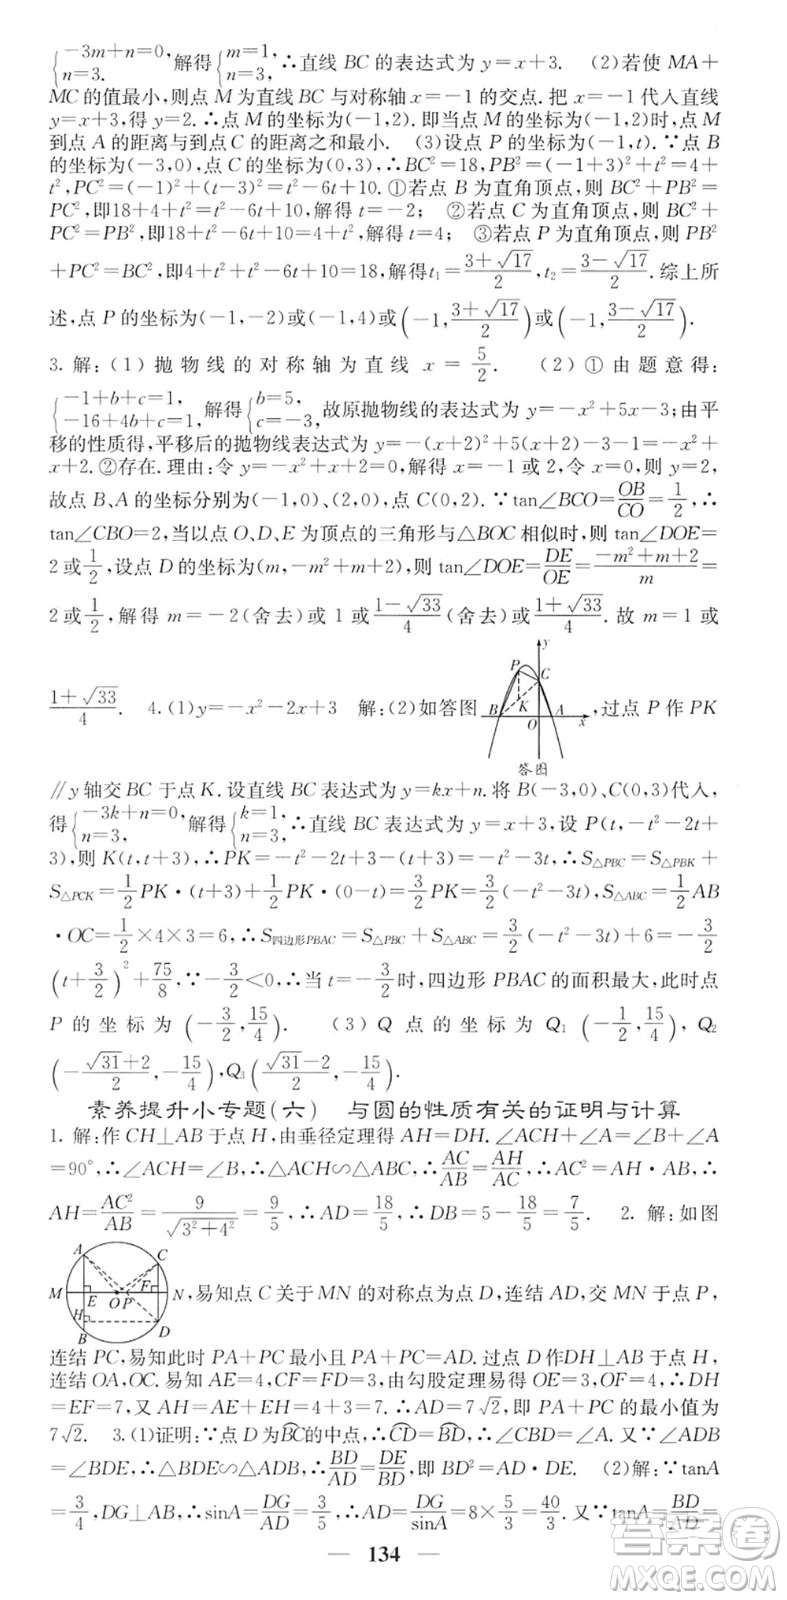 {−3m+n=0, n=3. 解得{m=1, n=3, ∴直线 BC 的表达式为 y=x+3. (2)若使 MA+
MC 的值最小,则点 M 为直线 BC 与对称轴 x=−1 的交点. 把 x=−1 代入直线
y=x+3,得 y=2. ∴点 M 的坐标为(−1,2). 即当点 M 的坐标为(−1,2)时,点 M
到点 A 的距离与到点 C 的距离之和最小. (3)设点 P 的坐标为(−1,t). ∵点 B
的坐标为(−3,0),点 C 的坐标为(0,3),∴BC²=18,PB²=(−1+3)²+t²=4+
t²,PC²=(−1)²+(t−3)²=t²−6t+10. ①若点 B 为直角顶点,则 BC²+PB²=
PC²,即18+4+t²=t²−6t+10,解得 t=−2; ②若点 C 为直角顶点,则 BC²+
PC²=PB²,即18+t²−6t+10=4+t²,解得 t=4; ③若点 P 为直角顶点,则 PB²
+PC²=BC²,即4+t²+t²−6t+10=18,解得t₁=(3+√17)/2,t₂=(3−√17)/2. 综上所
述,点 P 的坐标为(−1,−2)或(−1,4)或(−1,(3+√17)/2)或(−1,(3−√17)/2).
3. 解:(1)抛物线的对称轴为直线 x=5/2. (2)①由题意得:
{−1+b+c=1, −16+4b+c=1, 解得{b=5, c=−3, 故原抛物线的表达式为 y=−x²+5x−3;由平
移的性质得,平移后的抛物线表达式为 y=−(x+2)²+5(x+2)−3−1=−x²+
x+2. ②存在. 理由:令 y=−x²+x+2=0,解得 x=−1 或 2,令 x=0,则 y=2,
故点 B、A 的坐标分别为(−1,0)、(2,0),点 C(0,2). ∵tan∠BCO=OB/CO=1/2,∴
tan∠CBO=2,当以点 O、D、E 为顶点的三角形与△BOC 相似时,则 tan∠DOE=
2 或1/2,设点 D 的坐标为(m,−m²+m+2),则 tan∠DOE=DE/OE=(−m²+m+2)/m=
2 或1/2,解得 m=−2(舍去)或 1 或(1−√33)/4(舍去)或(1+√33)/4. 故 m=1 或
(1+√33)/4. 4.(1)y=−x²−2x+3 解:(2)如答图 y P C K B O A x 答图 ,过点 P 作 PK
∥y 轴交 BC 于点 K. 设直线 BC 表达式为 y=kx+n. 将 B(−3,0)、C(0,3)代入,
得{−3k+n=0, n=3, 解得{k=1, n=3, ∴直线 BC 表达式为 y=x+3,设 P(t,−t²−2t+
3),则 K(t,t+3),∴PK=−t²−2t+3−(t+3)=−t²−3t,∴S△PBC=S△PBK+
S△PCK=1/2PK·(t+3)+1/2PK·(0−t)=3/2PK=3/2(−t²−3t),S△ABC=1/2AB
·OC=1/2×4×3=6,∴S四边形PBAC=S△PBC+S△ABC=3/2(−t²−3t)+6=−3/2
(t+3/2)²+75/8,∵−3/2<0,∴当 t=−3/2时,四边形 PBAC 的面积最大,此时点
P 的坐标为(−3/2,15/4). (3)Q 点的坐标为 Q₁(−1/2,15/4),Q₂
(−(√31+2)/2,−15/4),Q₃((√31−2)/2,−15/4).
素养提升小专题(六) 与圆的性质有关的证明与计算
1. 解:作 CH⊥AB 于点 H,由垂径定理得 AH=DH. ∠ACH+∠A=∠B+∠A
=90°,∴∠ACH=∠B,∴△ACH∽△ABC,∴AC/AB=AH/AC. ∴AC²=AH·AB,∴
AH=AC²/AB=9/√(3²+4²)=9/5,∴AD=18/5,∴DB=5−18/5=7/5. 2. 解:如图
A C M E O P F N H B D ,易知点 C 关于 MN 的对称点为点 D,连结 AD,交 MN 于点 P,
连结 PC,易知此时 PA+PC 最小且 PA+PC=AD. 过点 D作DH⊥AB 于点 H,
连结 OA,OC. 易知 AE=4,CF=FD=3,由勾股定理可得 OE=3,OF=4,∴DH
=EF=7,又 AH=AE+EH=4+3=7. ∴AD=7√2,即 PA+PC 的最小值为
7√2. 3.(1)证明:∵点 D为BC的中点,∴CD=BD,∴∠CBD=∠A. 又∵∠ADB
=∠BDE,∴△BDE∽△ADB,∴BD/AD=DE/BD,即 BD²=AD·DE. (2)解:∵tanA
=3/4,DG⊥AB,∴sinA=DG/AD=3/5,∴AD=DG/sinA=8×5/3=40/3. 又∵tanA=BD/AD=
— 134 —
答案圈
MXQE.COM